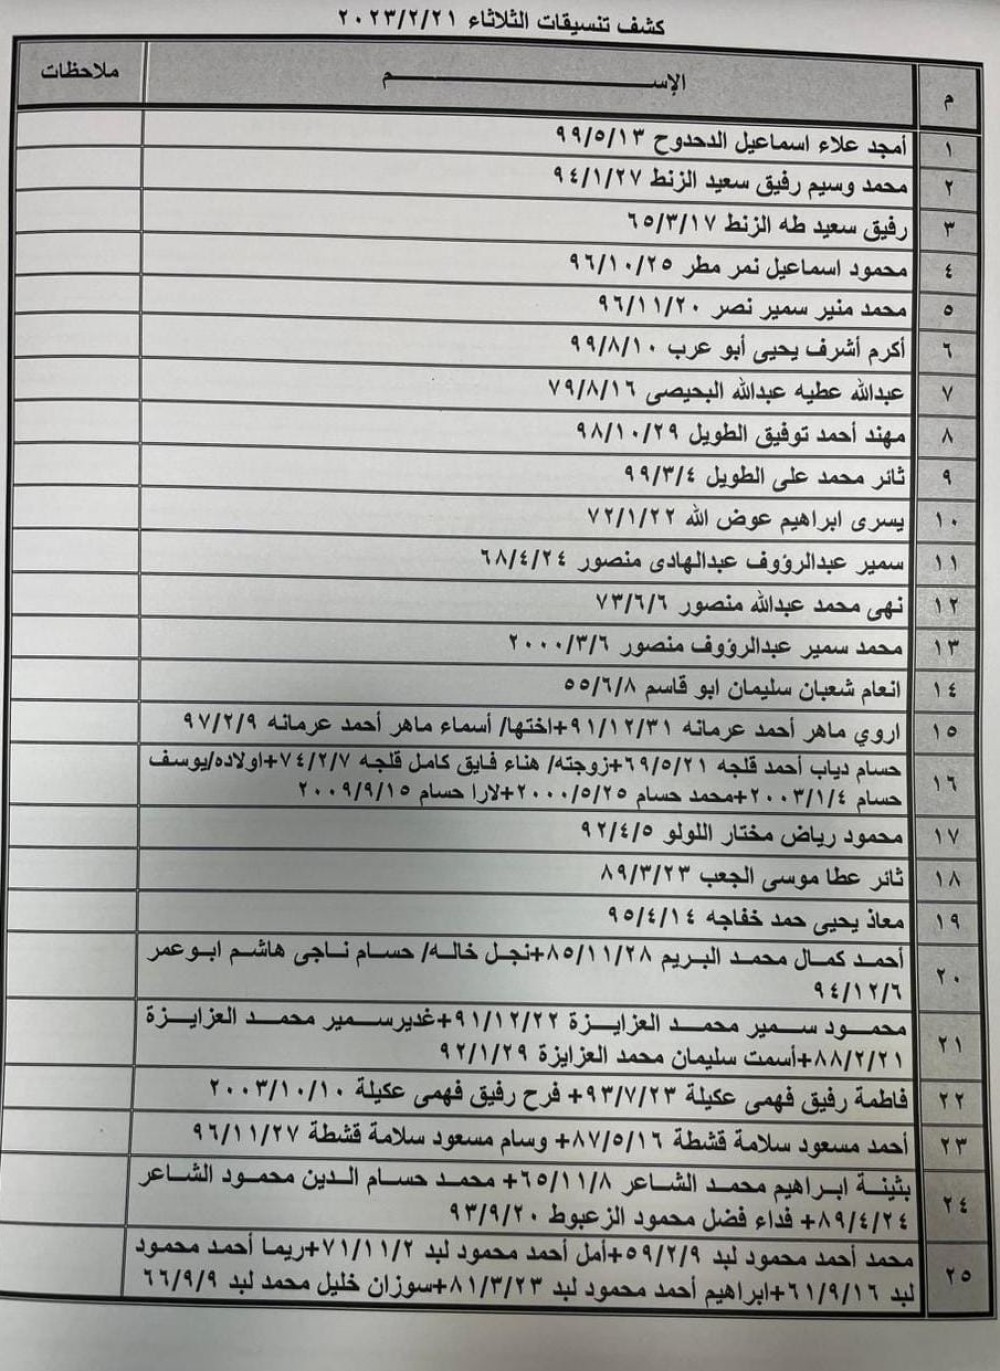 كشف تنسيقات الثلاثاء ٢٠٢٣/٢/٢١
م الإســــــم ملاحظات
١ أمجد علاء اسماعيل الدحدوح ٩٩/٥/١٣
٢ محمد وسيم رفيق سعيد الزنط ٩٤/١/٢٧
٣ رفيق سعيد طه الزنط ٦٥/٣/١٧
٤ محمود اسماعيل نمر مطر ٩٦/١٠/٢٥
٥ محمد منير سمير نصر ٩٦/١١/٢٠
٦ أكرم أشرف يحيى أبو عرب ٩٩/٨/١٠
٧ عبدالله عطيه عبدالله البحيصى ٧٩/٨/١٦
٨ مهند أحمد توفيق الطويل ٩٨/١٠/٢٩
٩ ثائر محمد على الطويل ٩٩/٣/٤
١٠ يسرى ابراهيم عوض الله ٧٢/١/٢٢
١١ سمير عبدالرؤوف عبدالهادى منصور ٦٨/٤/٢٤
١٢ نهى محمد عبدالله منصور ٧٣/٦/٦
١٣ محمد سمير عبدالرؤوف منصور ٢٠٠٠/٣/٦
١٤ انعام شعبان سليمان ابو قاسم ٥٥/٦/٨
١٥ اروي ماهر أحمد عرمانه ٩١/١٢/٣١+اختها/ أسماء ماهر أحمد عرمانه ٩٧/٢/٩
١٦ حسام دياب أحمد قلجه ٦٩/٥/٢١+زوجته/ هناء فايق كامل قلجه ٧٤/٢/٧+اولاده/يوسف
حسام ٢٠٠٣/١/٤+محمد حسام ٢٠٠٠/٥/٢٥+لارا حسام ٢٠٠٩/٩/١٥
١٧ محمود رياض مختار اللولو ٩٢/٤/٥
١٨ ثائر عطا موسى الجعب ٨٩/٣/٢٣
١٩ معاذ يحيى حمد خفاجه ٩٥/٤/١٤
٢٠ أحمد كمال محمد البريم ٨٥/١١/٢٨+نجل خاله/ حسام ناجى هاشم ابوعمر
٩٤/١٢/٦
٢١ محمود سمير محمد العزايزة ٩١/١٢/٢٢+غديرسمير محمد العزايزة
٨٨/٢/٢١+أسمت سليمان محمد العزايزة ٩٢/١/٢٩
٢٢ فاطمة رفيق فهمى عكيلة ٩٣/٧/٢٣+ فرح رفيق فهمى عكيلة ٢٠٠٣/١٠/١٠
٢٣ أحمد مسعود سلامة قشطة ٨٧/٥/١٦+ وسام مسعود سلامة قشطة ٩٦/١١/٢٧
٢٤ بثينة ابراهيم محمد الشاعر ٦٥/١١/٨+ محمد حسام الدين محمود الشاعر
٨٩/٤/٢٤+ فداء فضل محمود الزعبوط ٩٣/٩/٢٠
٢٥ محمد أحمد محمود لبد ٥٩/٢/٩+أمل أحمد محمود لبد ٧١/١١/٢+ريما أحمد محمود
لبد ٦١/٩/١٦+ابراهيم أحمد محمود لبد ٨١/٣/٢٣+سوزان خليل محمد لبد ٦٦/٩/٩